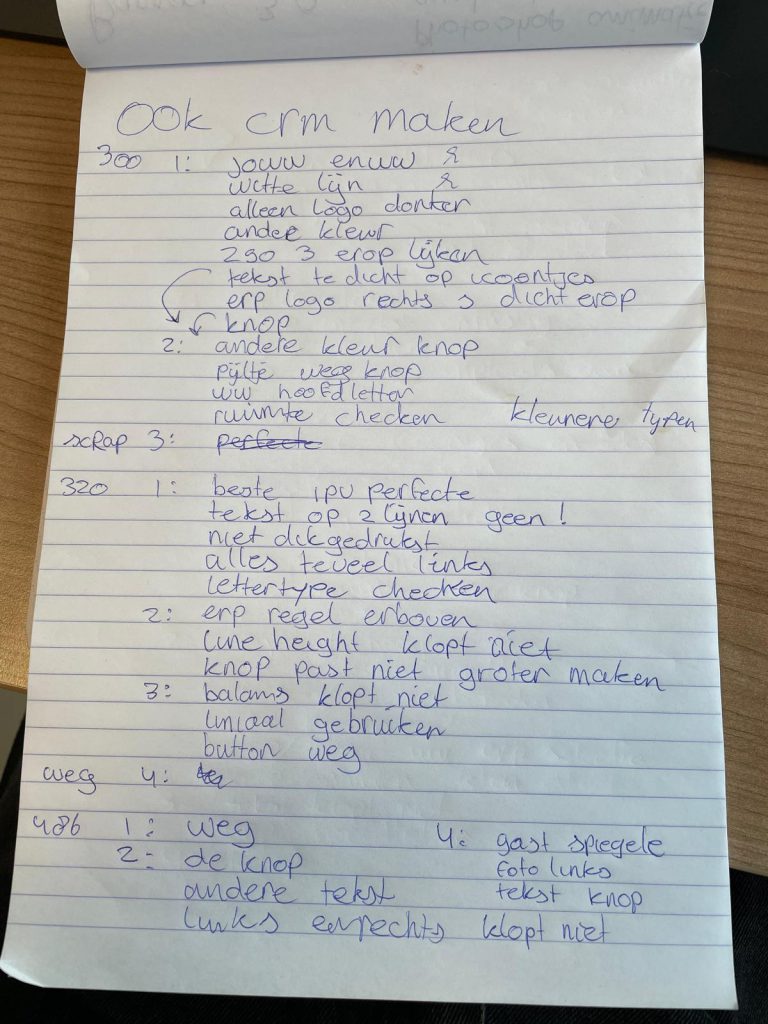 Photoshop animatie
Ook crm maken
300 1: jouw en uw
witte lijn
alleen logo donker
andee kleur
290 3 erop lijken
tekst te dicht op icoontjes
erp logo rechts s dicht erop
knop
2: andere kleur knop
pijltje weg knop
uw hoofdletter
ruimte checken kleinere typen
scrap 3: perfecte
320 1: beste ipv perfecte
tekst op 2 lijnen geen!
niet dikgedrukst
alles teveel links
lettertype checken
2: erp regel erboven
line height klopt niet
knop past niet groter maken
3: balans klopt niet
liniaal gebruiken
button weg
weg 4:
486 1: weg
2: de knop
andere tekst
links en rechts klopt niet
4: gast spiegele
foto links
tekst knop